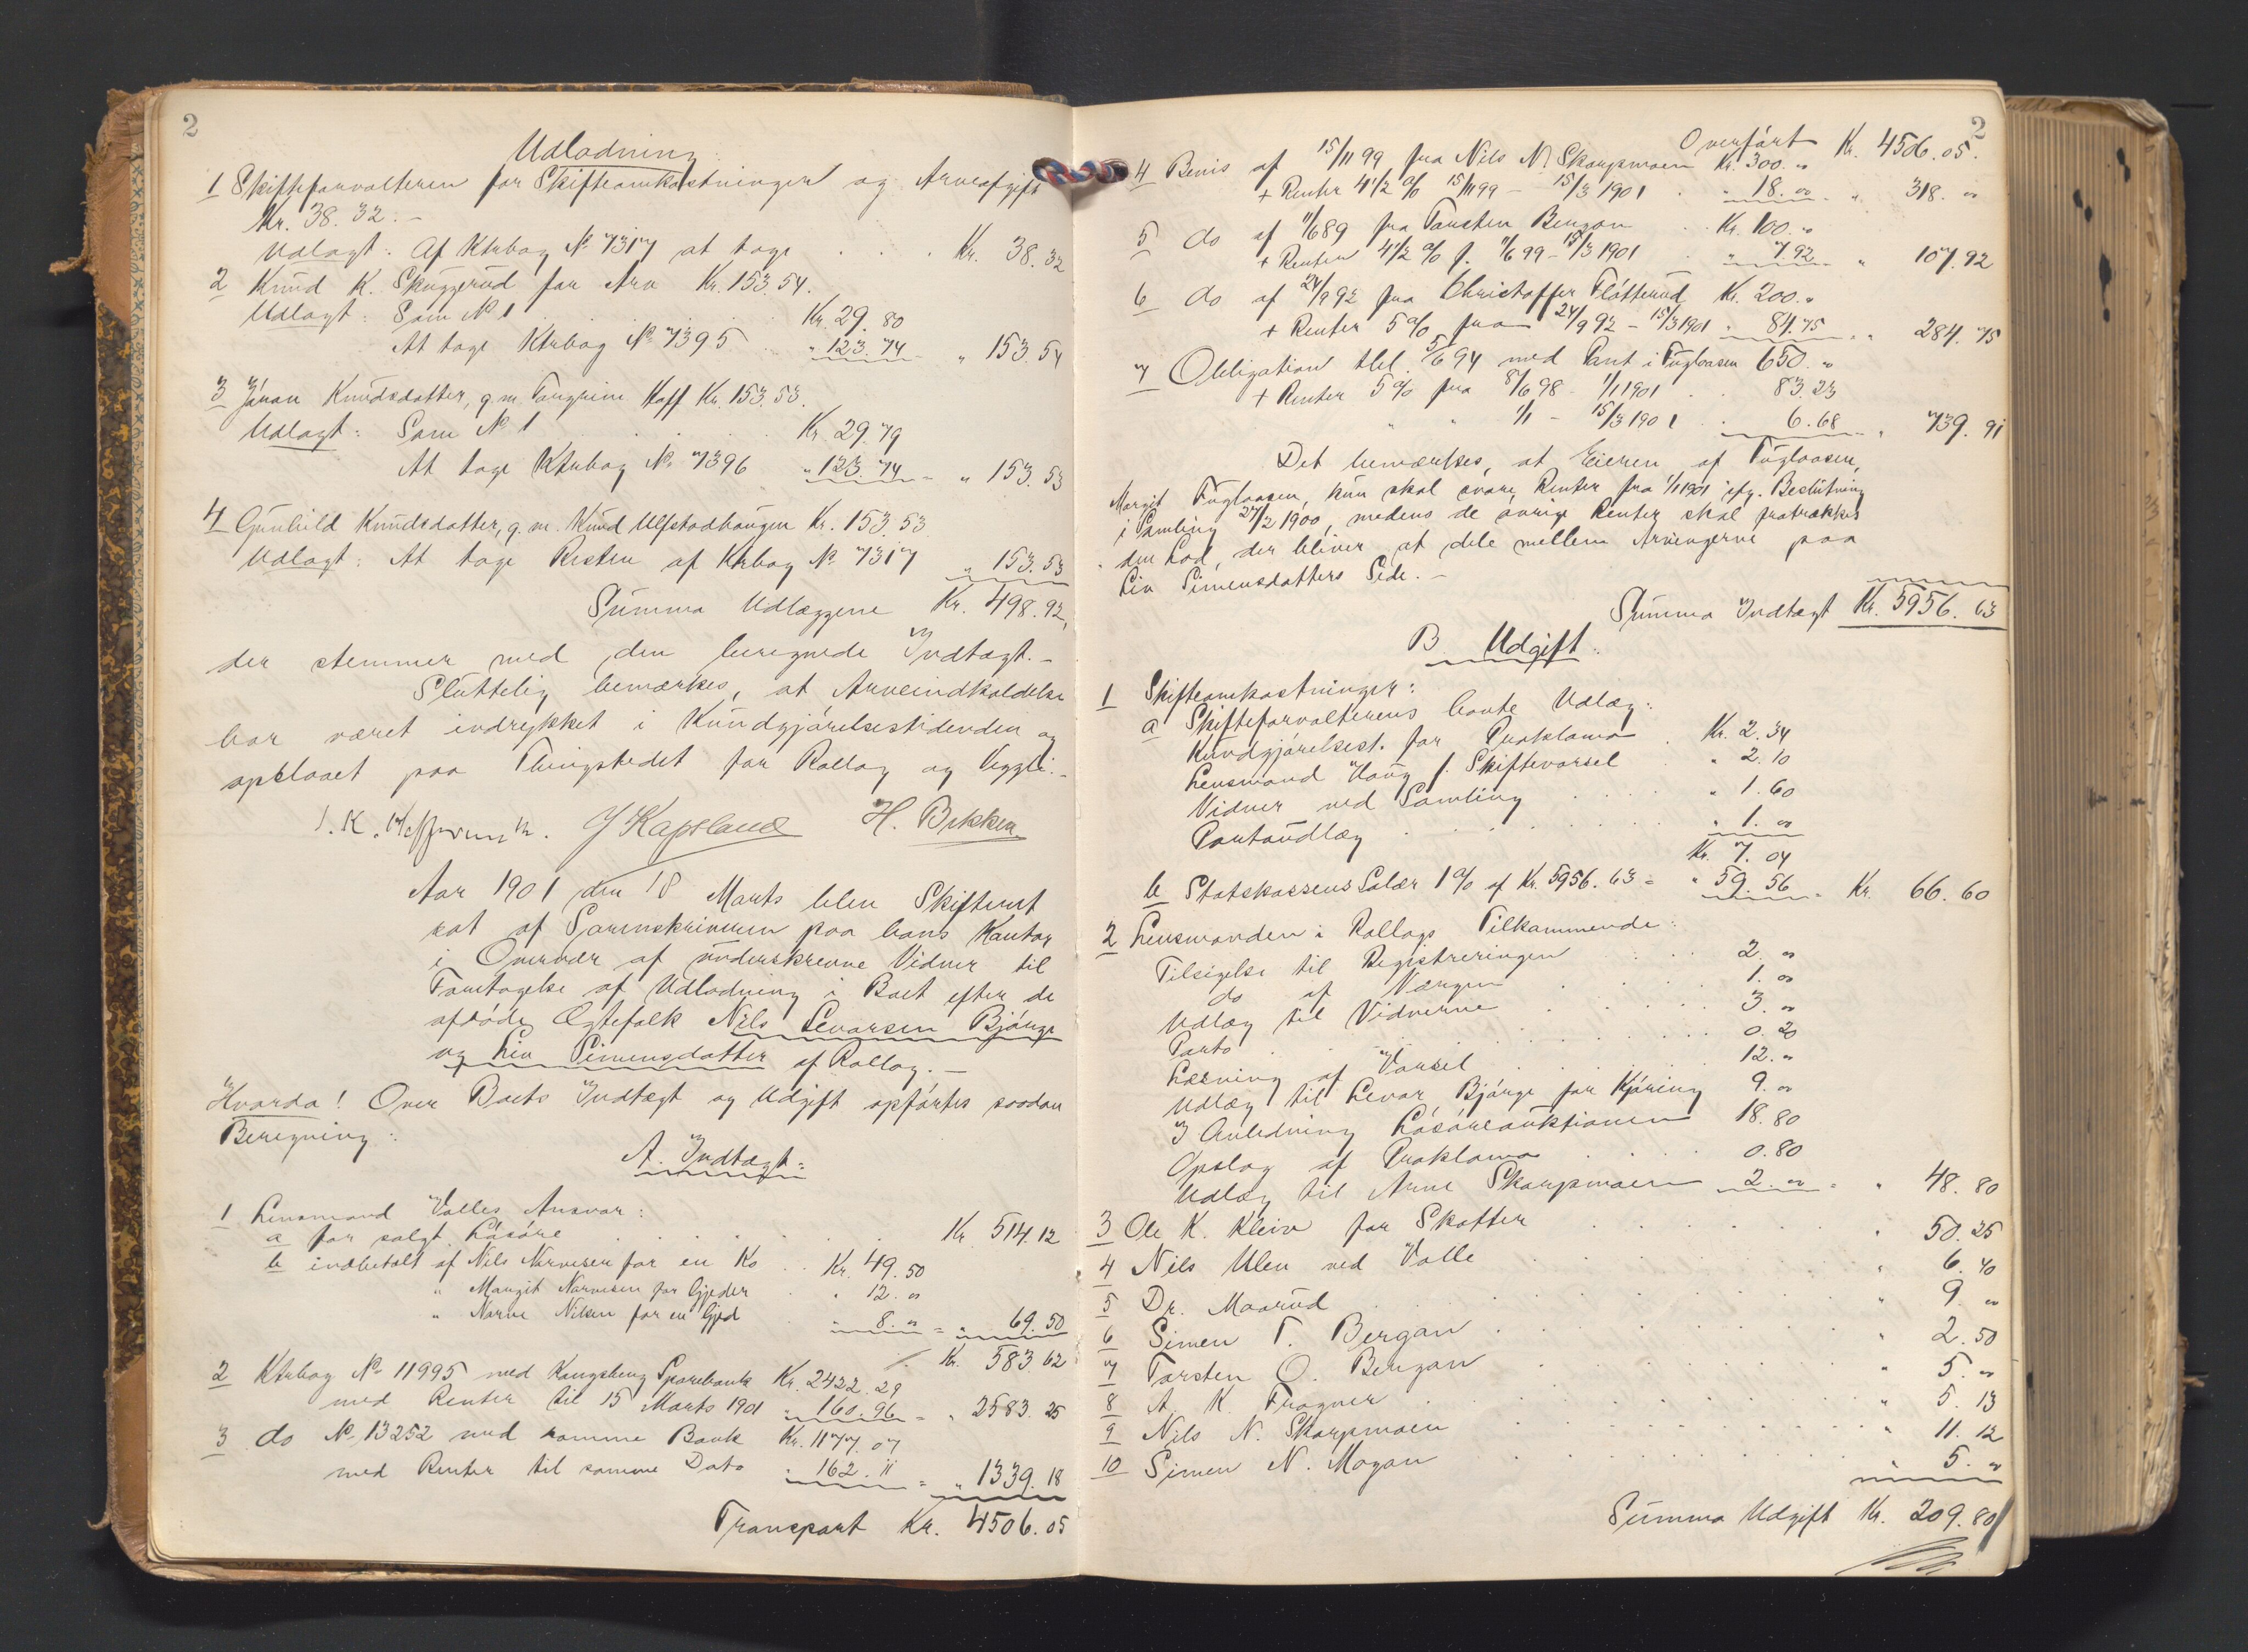 2
Udlodning.
1 Skifteforvalteren for Skifteomkostninger og Arveafgift
Kr. 38.32.-
Udlagt: Af Ktrbog No 7317 at tage . . . Kr. 38.32
2 Knud K. Skuggerud for Arv Kr. 153.54.
Udlagt: Som No 1 . . . Kr. 29.80
At tage Ktrbog No 7395 " 123.74 " 153.54
3 Jöran Knudsdatter, g. m. Tongrim Hoff Kr. 153.53.
Udlagt: Som No 1 . . . Kr. 29.79
At tage Ktrbog No 7396 " 123.74 = " 153.53
4 Gunhild Knudsdatter, g. m. Knud Ulfstadhaugen Kr. 153.53
Udlagt: At tage Resten af Ktrbog No 7317 " 153.53
Summa Udlæggene Kr. 498.92,
der stemmer med den beregnede Indtægt.-
Sluttelig bemærkes, at Arveindkaldelse
har været indrykket i Kundgjörelsestidenden og
opslaaet paa Thingstedet for Rollag og Veggli.-
G Kapsland H. Bekken
Aar 1901 den 18 Marts blev Skifteret
sat af Sorenskriveren paa hans Kontor
i Overvær af underskrevne Vidner til
Foretagelse af Udlodning i Boet efter de
afdöde Ægtefolk Nils Levorsen Bjönge
og Liv Simensdatter af Rollag.-
Hvorda! Over Boets Indtægt og Udgift opförtes saadan
Beregning:
A. Indtægt:
1 Lensmand Valles Ansvar:
a for solgt Lösöre . . . Kr 514.12
b indbetalt af Nils Narvesen for en Ko . . Kr. 49.50
" Margit Narvesen for Gjeder . " 12. "
" Narve Nilsen for en Gjed . " 8. " = " 69.50
Kr. 583 62
2 Ktrbog No 11995 med Kongsberg Sparebank Kr. 2422.29
med Renter til 15 Marts 1901 " 160.96 = " 2583.25
3 do No 13252 med samme Bank Kr. 1177.07
med Renter til samme Dato " 162.11 = " 1339.18
Transport Kr. 4506.05
2
Overfört Kr. 4506.05.
4 Bevis af 15/11 99 fra Nils N. Skarpmoen Kr. 300. "
+ Renter 4 1/2 % 15/11 99 - 15/3 1901 . " 18. " . " 318. "
5 do af 11/6 89 fra Torsten Bergan . Kr. 100. "
+ Renter 4 1/2 % f. 11/6 99 - 15/3 1901 . " 7.92 " 107.92
6 do af 24/9 92 fra Christoffer Flötterud Kr. 200. "
+ Renter 5 % fra 24/9 92 - 15/3 1901 " 84.75 . " 284.75
7 Obligation tbl. 5/6 94 med Pant i Fuglaasen 650. "
+ Renter 5 % fra 8/6 98 - 1/1 1901 . . 83.23
" " 1/1 - 15/3 1901 . " 6.68 " 739.91
Det bemærkes, at Eieren af Fuglaasen,
Margit Fuglaasen, kun skal svare Renter fra 1/1 1901 ifg. Beslutning
i Samling 27/2 1900, medens de övrige Renter skal fratrækkes
den Lod, der bliver at dele mellem Arvingerne paa
Liv Simensdatters Side.-
Summa Indtægt Kr. 5956.63
B. Udgift.
1 Skifteomkostninger:
a Skifteforvalterens havte Udlæg:
Kundgjörelsest. for Proklama . Kr. 2.34
Lensmand Haug f. Skiftevarsel . " 2.10
Vidner ved Samling . . . " 1.60
Portoudlæg . . . " 1. "
Kr. 7.04
b Statskassens Salær 1 % af Kr. 5956.63 = " 59.56 = Kr. 66.60
2 Lensmanden i Rollags Tilkommende:
Tilsigelse til Registreringen . . . 2. "
do af Værgen . . . 1. "
Udlæg til Vidnerne . . . 3. "
Porto . . . 0.20
Læsning af Varsel . . . 12. "
Udlæg til Levor Bjönge for Kjöring 9. "
I Anledning Lösöreauktionen 18.80
Opslag af Proklama . . . 0.80
Udlæg til Arne Skarpmoen 2. " = " 48.80
3 Ole K. Kleiv for Skatter . . . " 50.25
4 Nils Ulen ved Valle . . . " 6.40
5 Dr. Maarud . . . " 9. "
6 Simen T. Bergan . . . " 2.50
7 Torsten O. Bergan . . . " 5. "
8 A. K. Frogner . . . " 5.13
9 Nils N. Skarpmoen . . . " 11.12
10 Simen N. Mogan . . . " 5. "
Summa Udgift Kr. 209.80